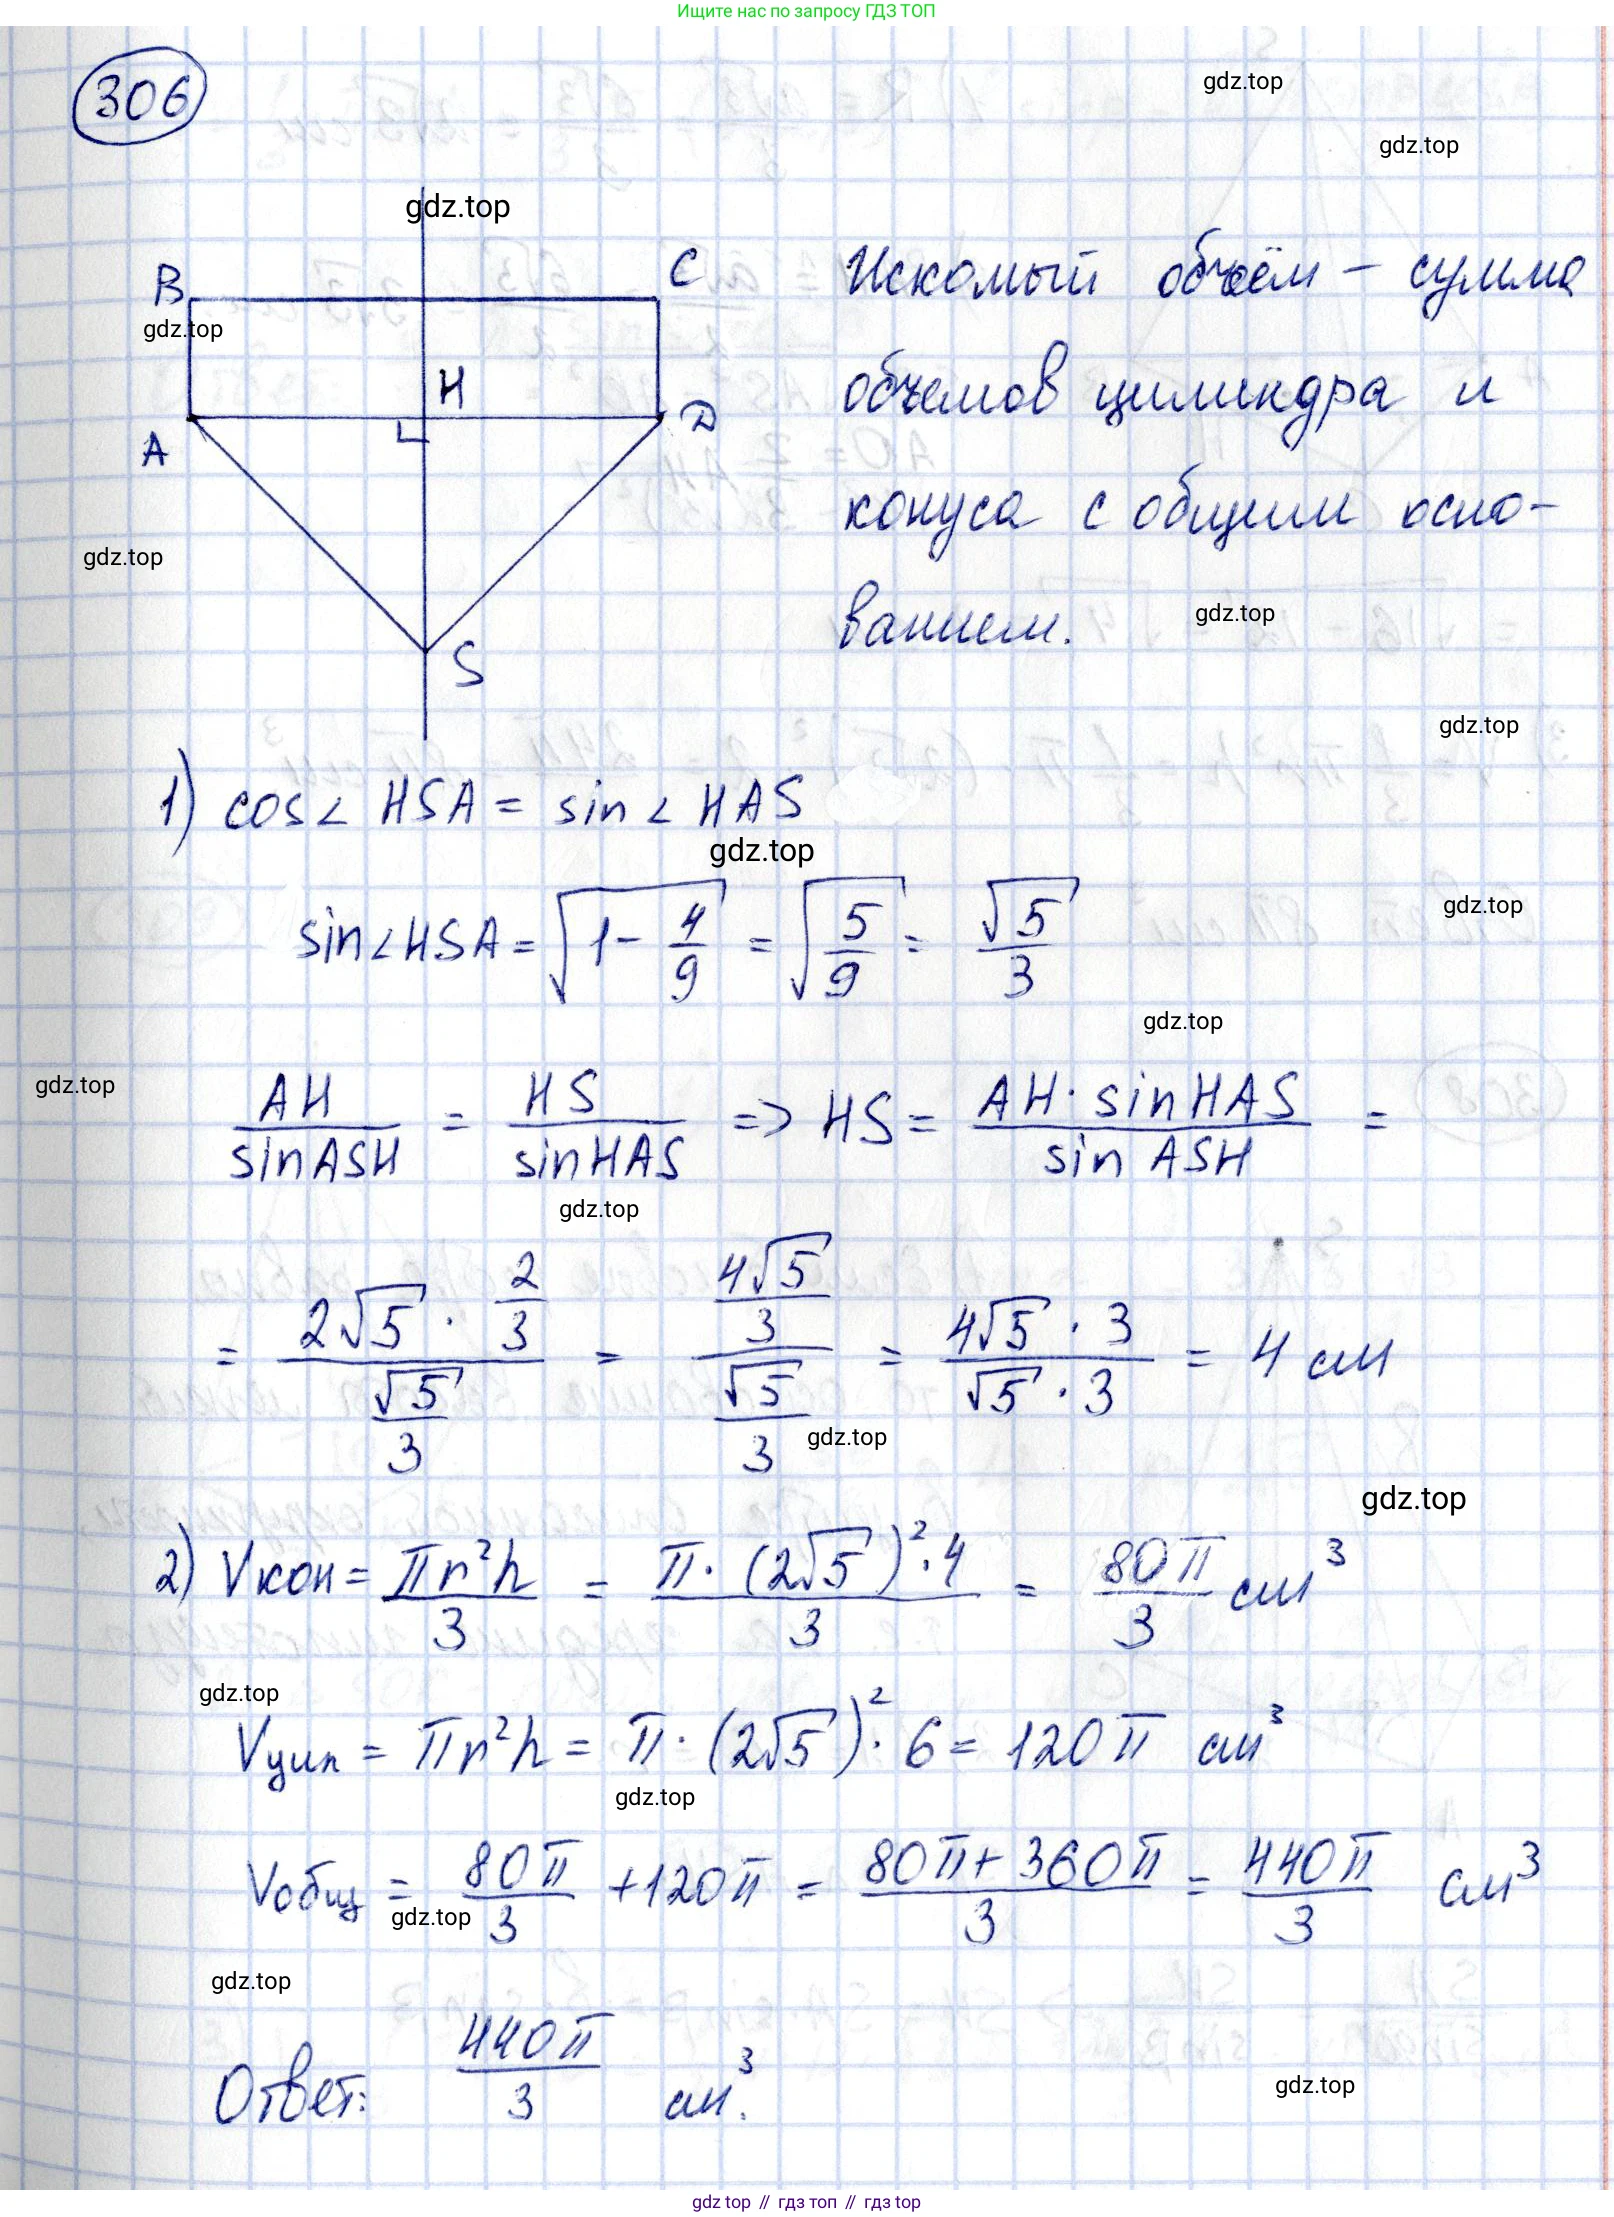 Ищите нас по запросу ГДЗ ТОП
306
gdz.top
gdz.top
gdz.top
B
C
Искомый объём - сумма
gdz.top
H
объемов цилиндра и
A
D
конуса с общим осно-
gdz.top
ванием.
gdz.top
S
gdz.top
1) cos∠ HSA = sin∠ HAS
gdz.top
sin∠HSA = √(1 - 4/9) = √(5/9) = √5/3
gdz.top
gdz.top
gdz.top
AH/sinASH = HS/sinHAS => HS = AH · sinHAS/sin ASH =
gdz.top
= (2√5 · 2/3)/(√5/3) = (4√5/3)/(√5/3) = 4√5 · 3/√5 · 3 = 4 см
gdz.top
gdz.top
2) Vкон = πr²h/3 = π · (2√5)² · 4/3 = 80π/3 см³
gdz.top
Vцил = πr²h = π · (2√5)² · 6 = 120π см³
gdz.top
Vобщ = 80π/3 + 120π = 80π + 360π/3 = 440π/3 см³
gdz.top
gdz.top
Ответ: 440π/3 см³.
gdz.top
gdz top // гдз топ // гдз top